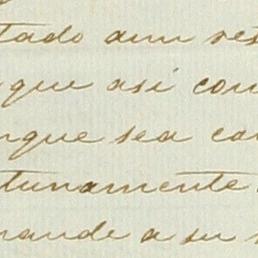 tado aun res
que así con
nque sea ca
tunamente
mande a su